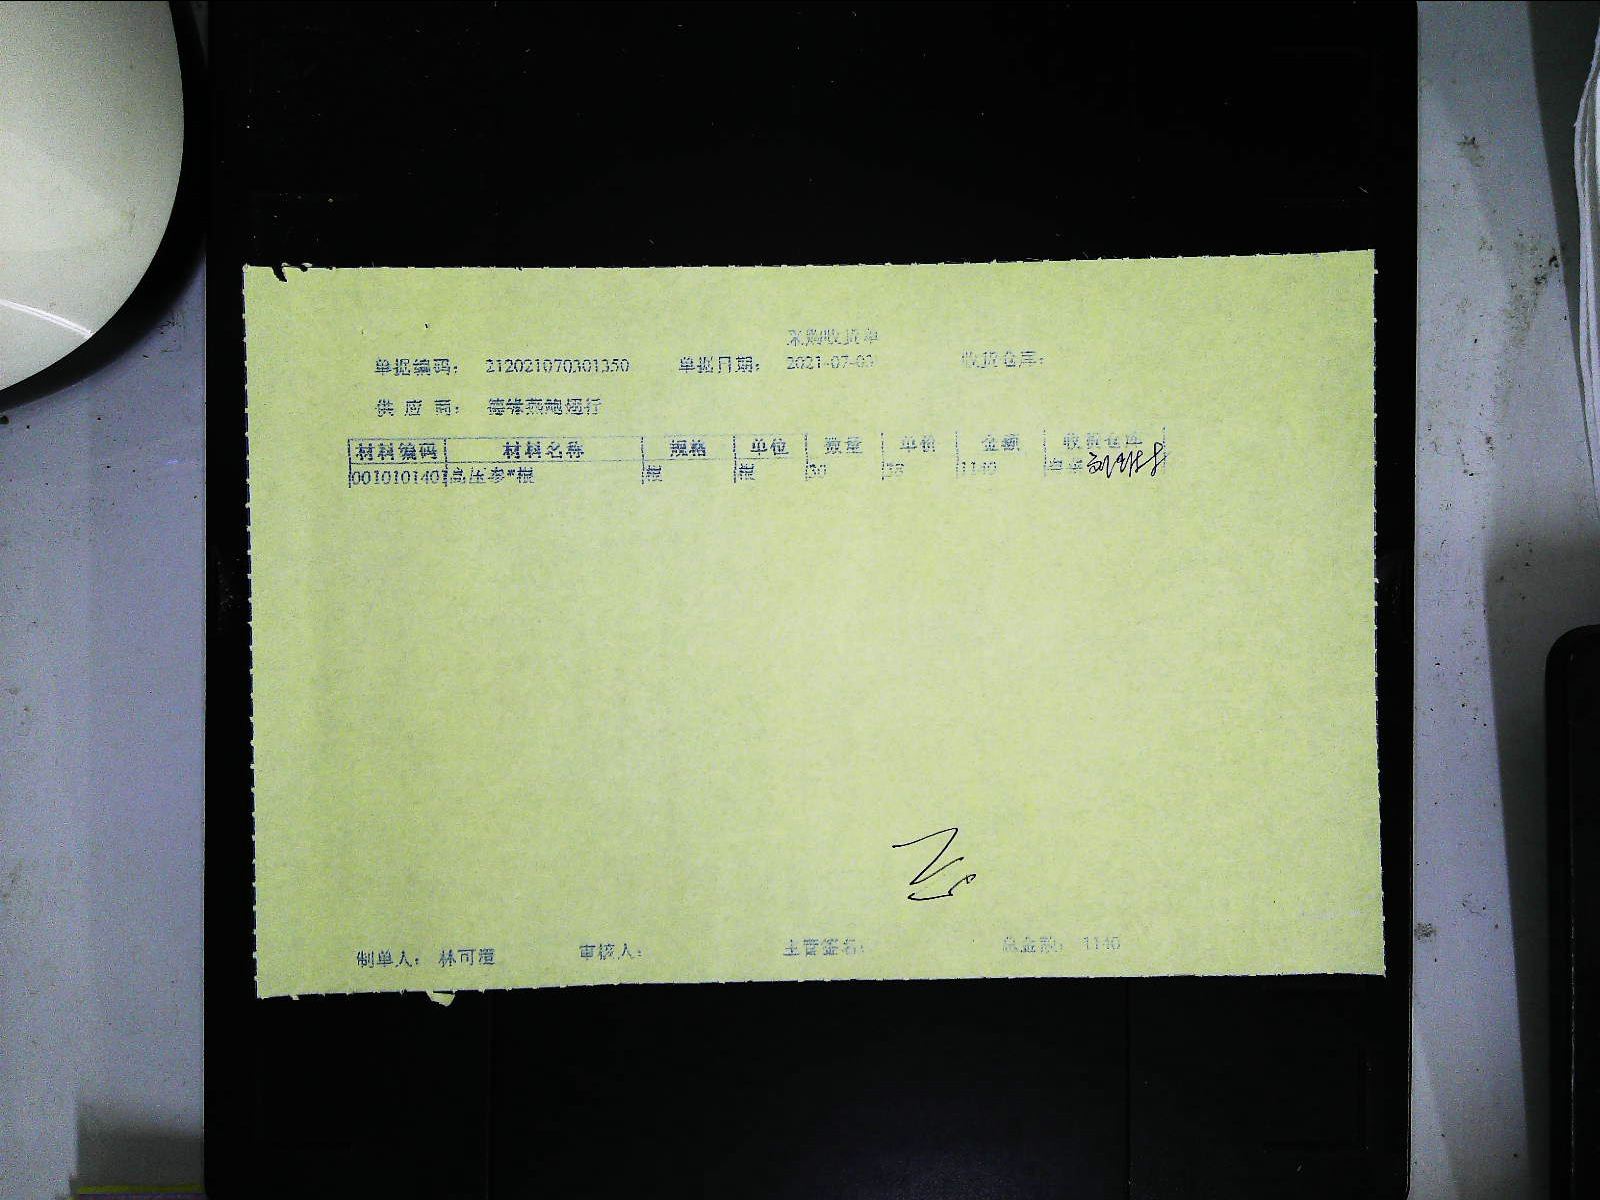 采购收货单
单据编码: 212021070301350 单据日期: 2021-07-03 收货仓库:
供 应 商:
材料编码 材料名称 规格 单位 数量 单价 金额 收货仓库
0010101401 高压参*根 根 根 30 38 1140
制单人: 林可 审核人: 主管签名: 总金额: 1140